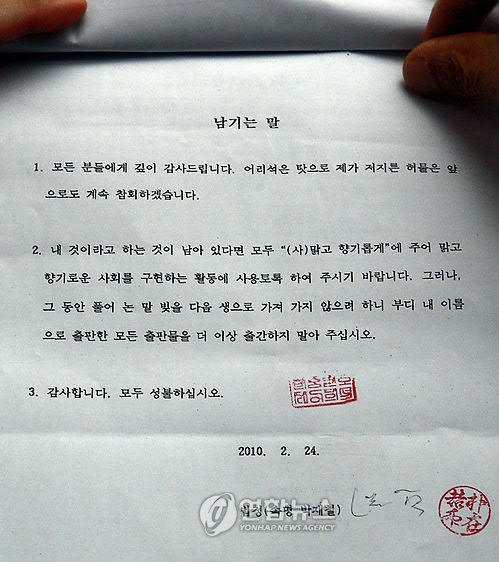 남기는 말
1. 모든 분들에게 깊이 감사드립니다. 어리석은 탓으로 제가 저지른 허물은 앞
으로도 계속 참회하겠습니다.
2. 내 것이라고 하는 것이 남아 있다면 모두 “(사)맑고 향기롭게”에 주어 맑고
향기로운 사회를 구현하는 활동에 사용토록 하여 주시기 바랍니다. 그러나,
그 동안 풀어 논 말 빚을 다음 생으로 가져 가지 않으려 하니 부디 내 이름
으로 출판한 모든 출판물을 더 이상 출간하지 말아 주십시오.
3. 감사합니다. 모두 성불하십시오.
2010. 2. 24.
법정(속명 박재철)
연합뉴스
YONHAP NEWS AGENCY